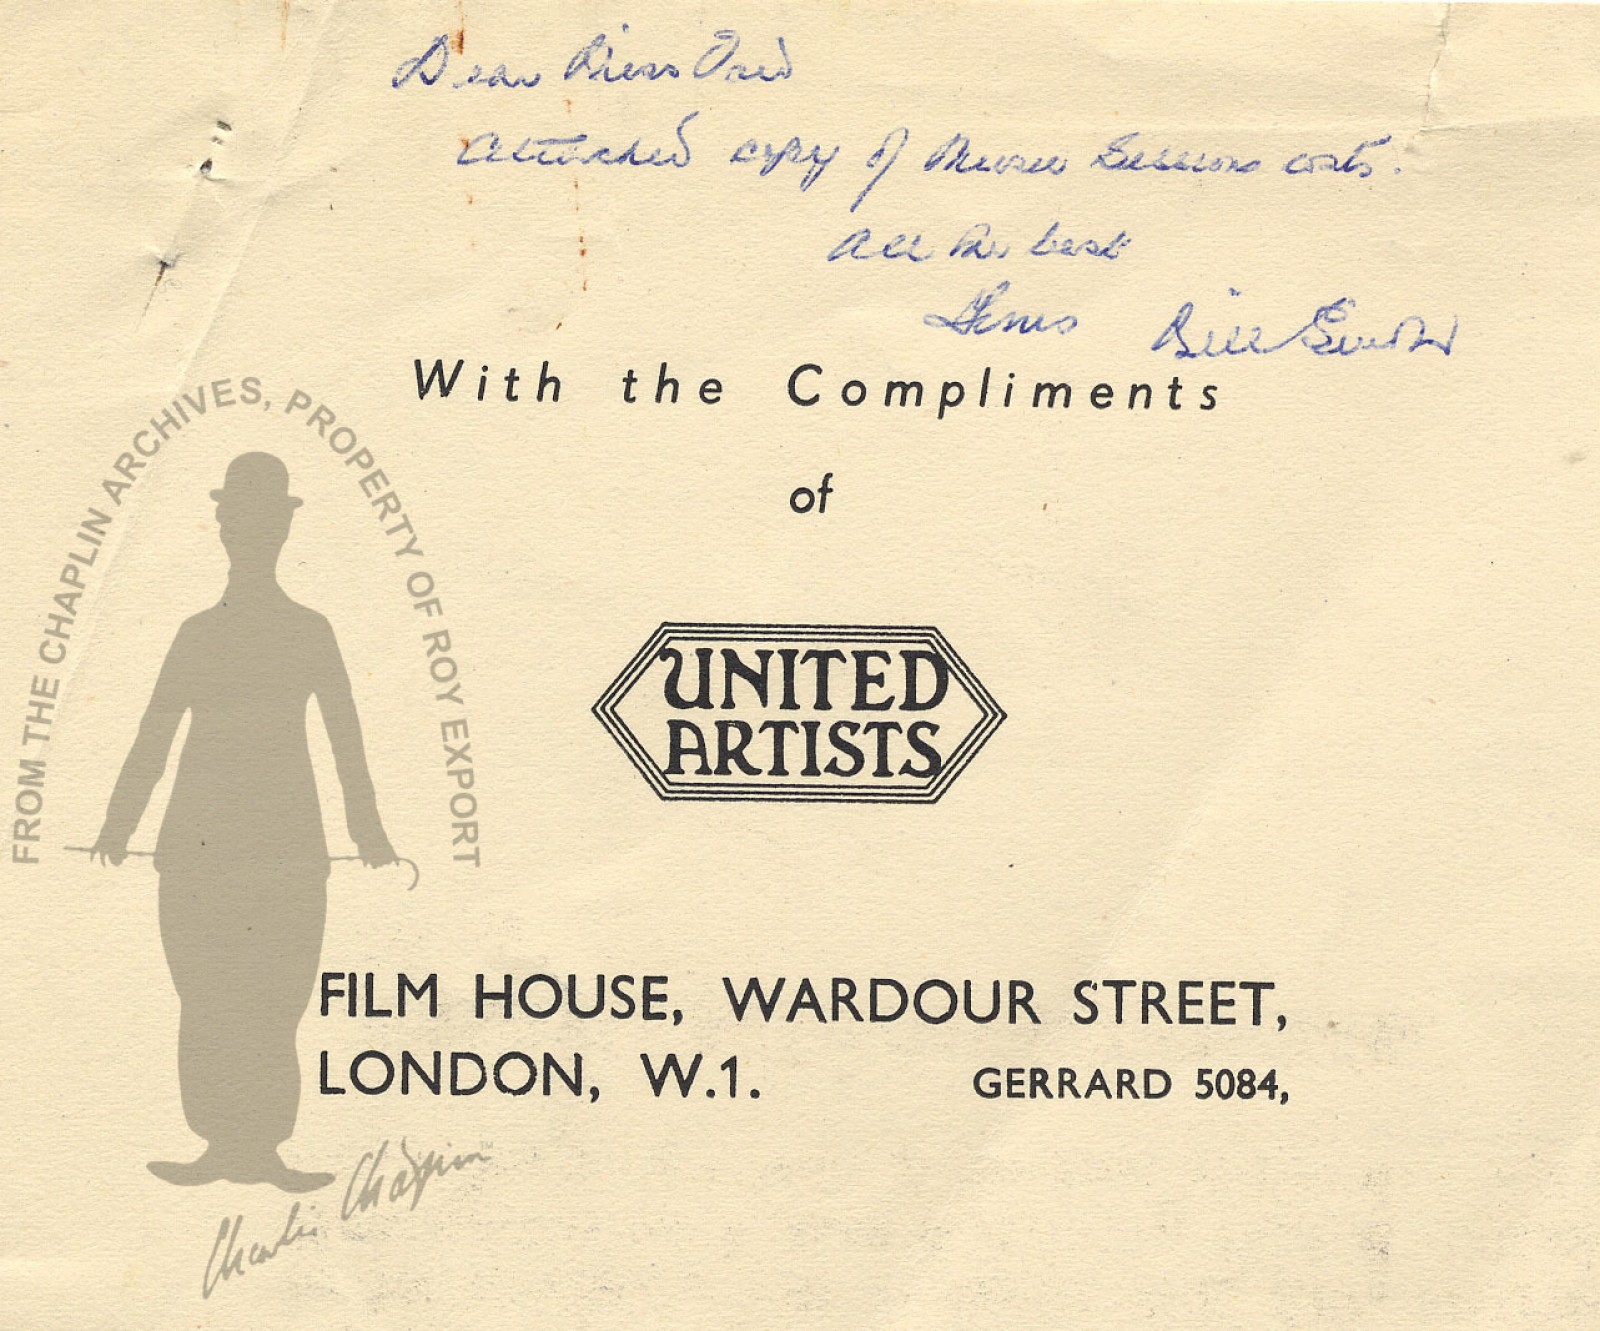 Dear Miss Ford
Attached copy of Music Sessions costs.
All the best
Yours Bill Smith
With the Compliments
of
UNITED
ARTISTS
FILM HOUSE, WARDOUR STREET,
LONDON, W.1. GERRARD 5084,
FROM THE CHAPLIN ARCHIVES, PROPERTY OF ROY EXPORT
Charlie Chaplin